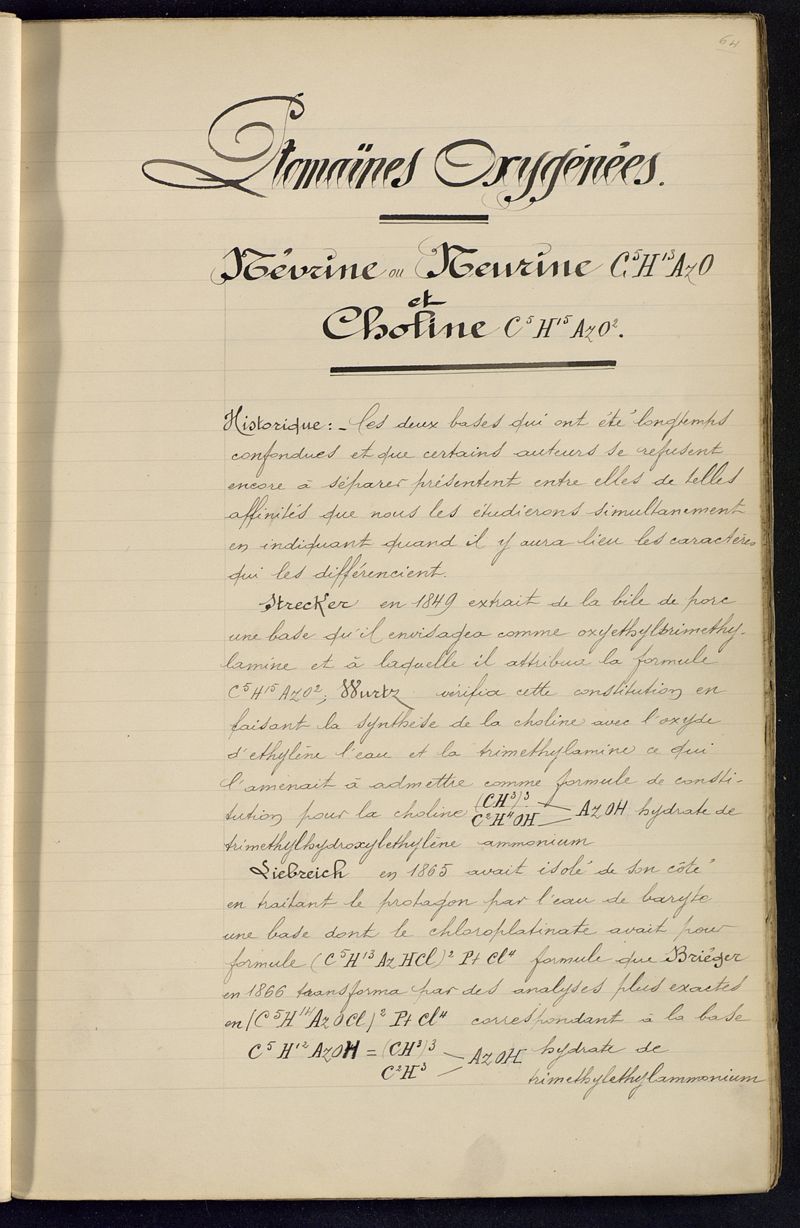 64
Ptomaïnes Oxygénées.
Névrine ou Neurine C⁵H¹³AzO
et
Choline C⁵H¹⁵AzO².
Historique :- Ces deux bases qui ont été longtemps
confondues et que certains auteurs se refusent
encore à séparer présentent entre elles de telles
affinités que nous les étudierons simultanement
en indiquant quand il y aura lieu les caractères
qui les différencient.
Strecker en 1849 extrait de la bile de porc
une base qu'il envisagea comme oxyethyltrimethy-
lamine et à laquelle il attribua la formule
C⁵H¹⁵AzO²; Wurtz vérifia cette constitution en
faisant la synthèse de la choline avec l'oxyde
d'ethylène l'eau et la trimethylamine ce qui
l'amenait à admettre comme formule de consti-
tution pour la choline (CH³)³ C²H⁴OH AzOH hydrate de
trimethylhydroxylethylène ammonium
Liebreich en 1865 avait isolé de son côté
en traitant le protagon par l'eau de baryte
une base dont le chloroplatinate avait pour
formule (C⁵H¹³AzHCl)² Pt Cl⁴ formule que Briéger
en 1866 transforma par des analyses plus exactes
en (C⁵H¹⁴AzOCl)² Pt Cl⁴ correspondant à la base
C⁵H¹²AzOH = (CH³)3 C²H³ AzOH hydrate de
trimethylethylammonium